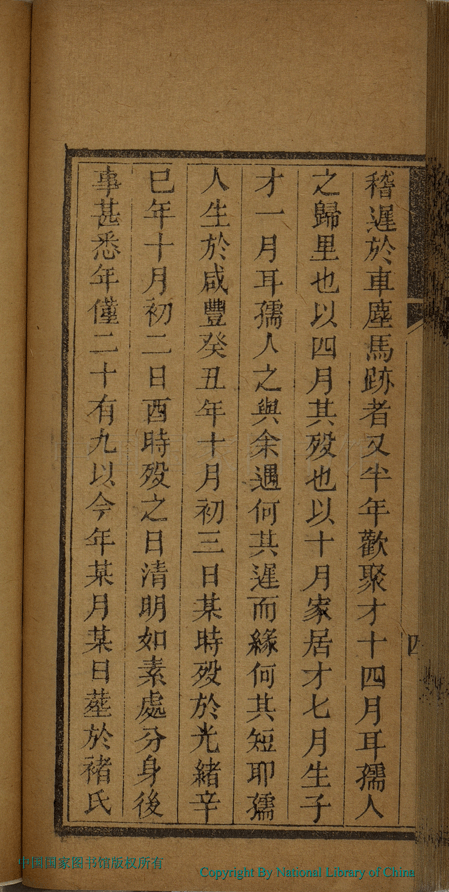 稽遲於車塵馬跡者又半年歡聚才十四月耳孺人
之歸里也以四月其歿也以十月家居才七月生子
才一月耳孺人之與余遇何其遲而緣何其短耶孺
人生於咸豐癸丑年十月初三日某時歿於光緒辛
巳年十月初二日酉時歿之日清明如素處分身後
事甚悉年僅二十有九以今年某月某日葬於褚氏
四
中国国家图书馆版权所有
Copyright By National Library of China